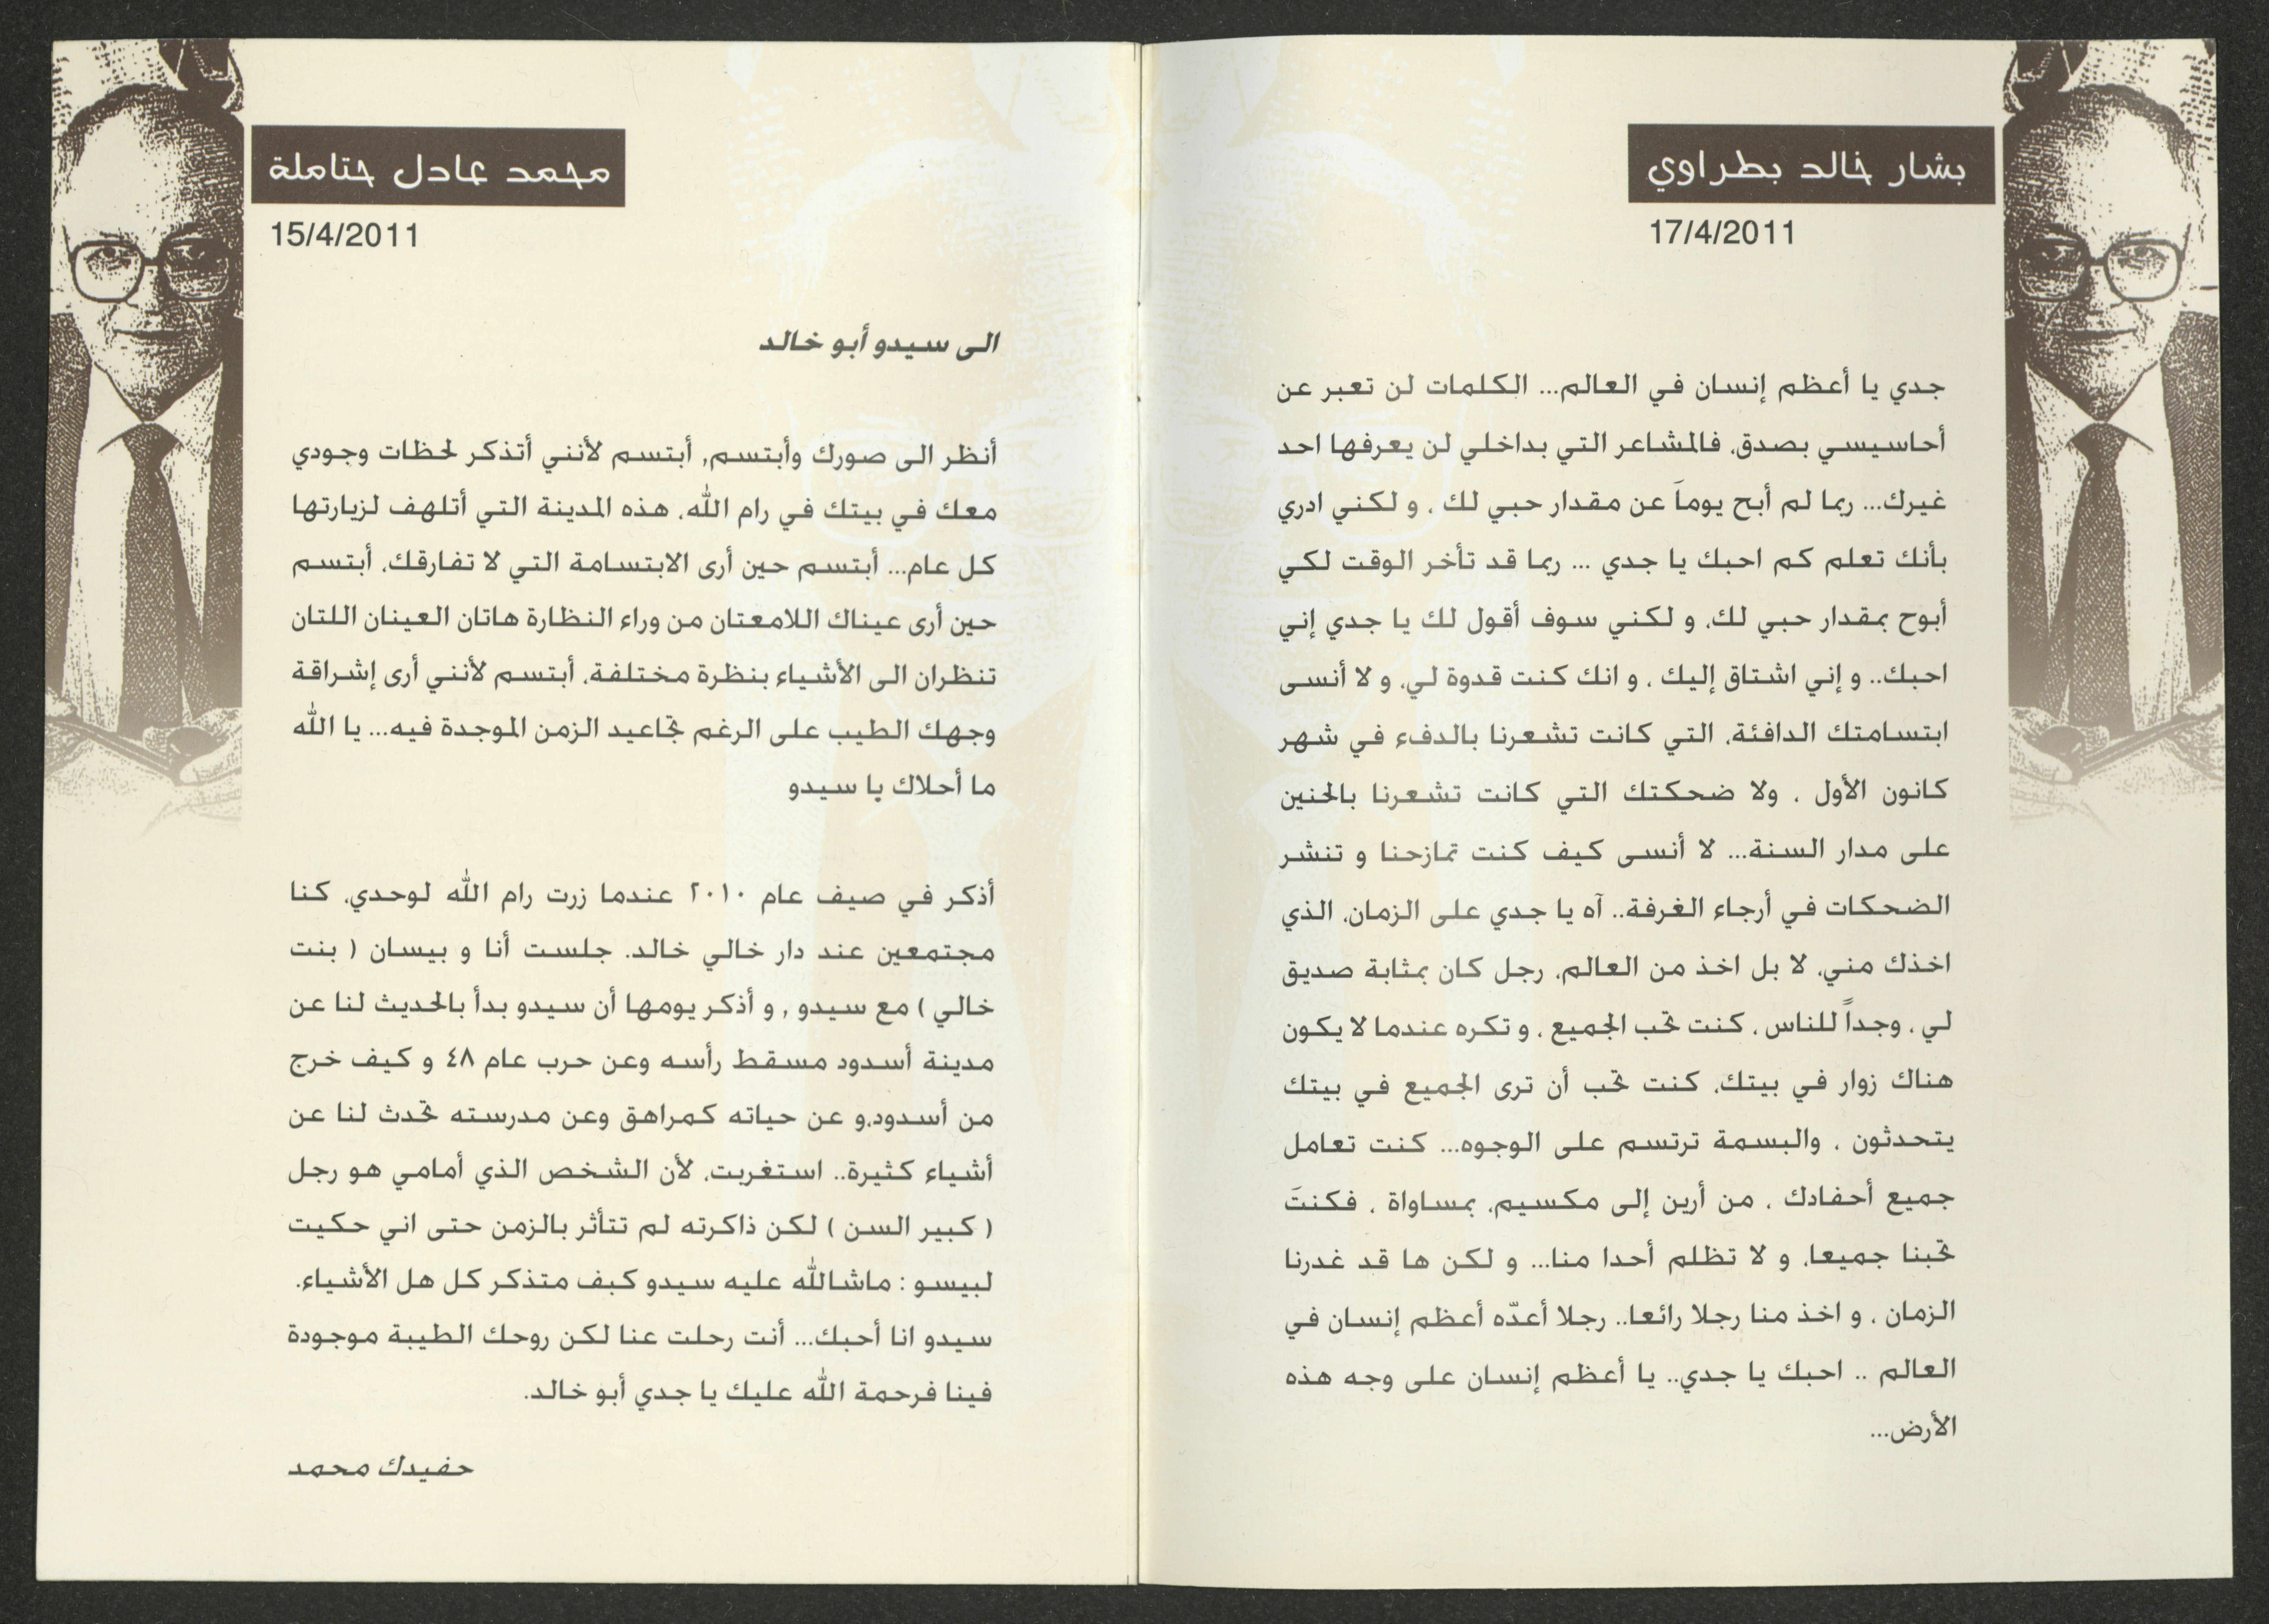 بشار خالد بطراوي
17/4/2011
جدي يا أعظم إنسان في العالم... الكلمات لن تعبر عن
أحاسيسي بصدق، فالمشاعر التي بداخلي لن يعرفها احد
غيرك... ربما لم أبح يوماَ عن مقدار حبي لك ، و لكني ادري
بأنك تعلم كم احبك يا جدي ... ربما قد تأخر الوقت لكي
أبوح بمقدار حبي لك، و لكني سوف أقول لك يا جدي إني
احبك.. و إني اشتاق إليك ، و انك كنت قدوة لي، و لا أنسى
ابتسامتك الدافئة، التي كانت تشعرنا بالدفء في شهر
كانون الأول ، ولا ضحكتك التي كانت تشعرنا بالحنين
على مدار السنة... لا أنسى كيف كنت تمازحنا و تنشر
الضحكات في أرجاء الغرفة.. آه يا جدي على الزمان، الذي
اخذك مني، لا بل اخذ من العالم، رجل كان بمثابة صديق
لي ، وجداً للناس ، كنت تحب الجميع ، و تكره عندما لا يكون
هناك زوار في بيتك، كنت تحب أن ترى الجميع في بيتك
يتحدثون ، والبسمة ترتسم على الوجوه... كنت تعامل
جميع أحفادك ، من أرين إلى مكسيم، بمساواة ، فكنتَ
تحبنا جميعا، و لا تظلم أحدا منا... و لكن ها قد غدرنا
الزمان ، و اخذ منا رجلا رائعا.. رجلا أعدّه أعظم إنسان في
العالم .. احبك يا جدي.. يا أعظم إنسان على وجه هذه
الأرض...
محمد عادل حتاملة
15/4/2011
الى سيدو أبو خالد
أنظر الى صورك وأبتسم, أبتسم لأنني أتذكر لحظات وجودي
معك في بيتك في رام الله، هذه المدينة التي أتلهف لزيارتها
كل عام... أبتسم حين أرى الابتسامة التي لا تفارقك، أبتسم
حين أرى عيناك اللامعتان من وراء النظارة هاتان العينان اللتان
تنظران الى الأشياء بنظرة مختلفة، أبتسم لأنني أرى إشراقة
وجهك الطيب على الرغم تجاعيد الزمن الموجدة فيه... يا الله
ما أحلاك يا سيدو
أذكر في صيف عام ٢٠١٠ عندما زرت رام الله لوحدي، كنا
مجتمعين عند دار خالي خالد. جلست أنا و بيسان ( بنت
خالي ) مع سيدو , و أذكر يومها أن سيدو بدأ بالحديث لنا عن
مدينة أسدود مسقط رأسه وعن حرب عام ٤٨ و كيف خرج
من أسدود،و عن حياته كمراهق وعن مدرسته تحدث لنا عن
أشياء كثيرة.. استغربت، لأن الشخص الذي أمامي هو رجل
( كبير السن ) لكن ذاكرته لم تتأثر بالزمن حتى اني حكيت
لبيسو : ماشالله عليه سيدو كيف متذكر كل هل الأشياء.
سيدو انا أحبك... أنت رحلت عنا لكن روحك الطيبة موجودة
فينا فرحمة الله عليك يا جدي أبو خالد.
حفيدك محمد